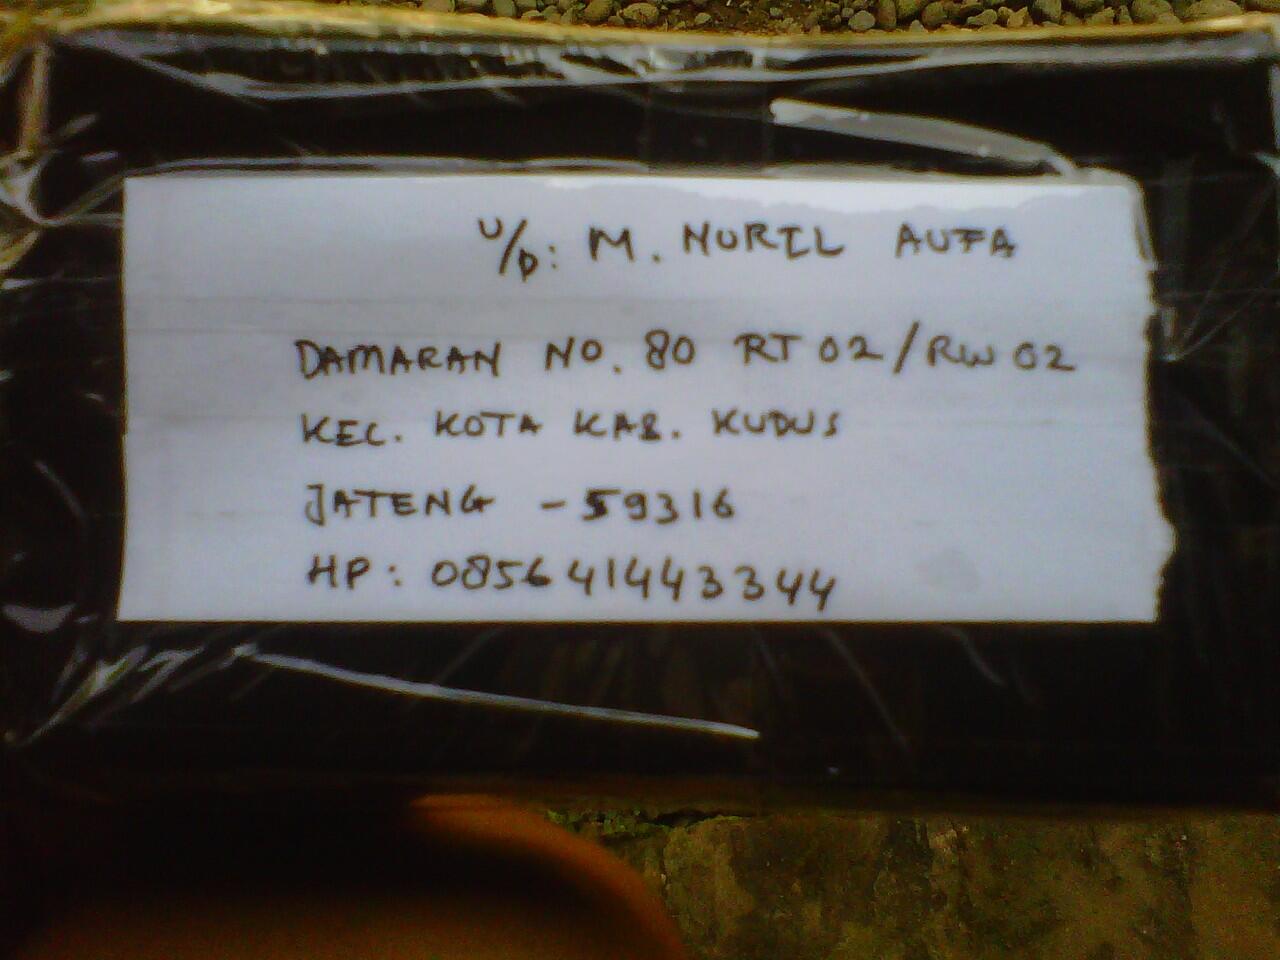 U/D: M. NURIL AUFA
DAMARAN NO. 80 RT 02/RW 02
KEC. KOTA KAB. KUDUS
JATENG - 59316
HP: 085641443344